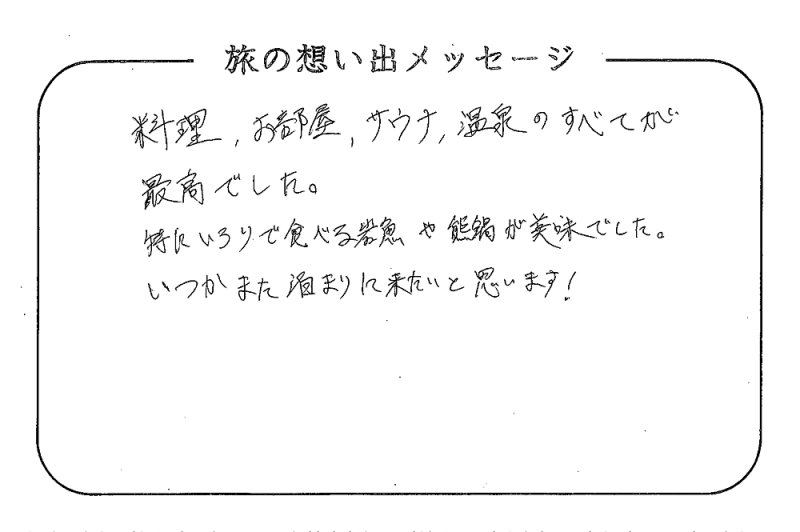 旅の想い出メッセージ
料理,お部屋,サウナ,温泉のすべてが
最高でした。
特にいろりで食べる岩魚や熊鍋が美味でした。
いつかまた泊まりに来たいと思います!